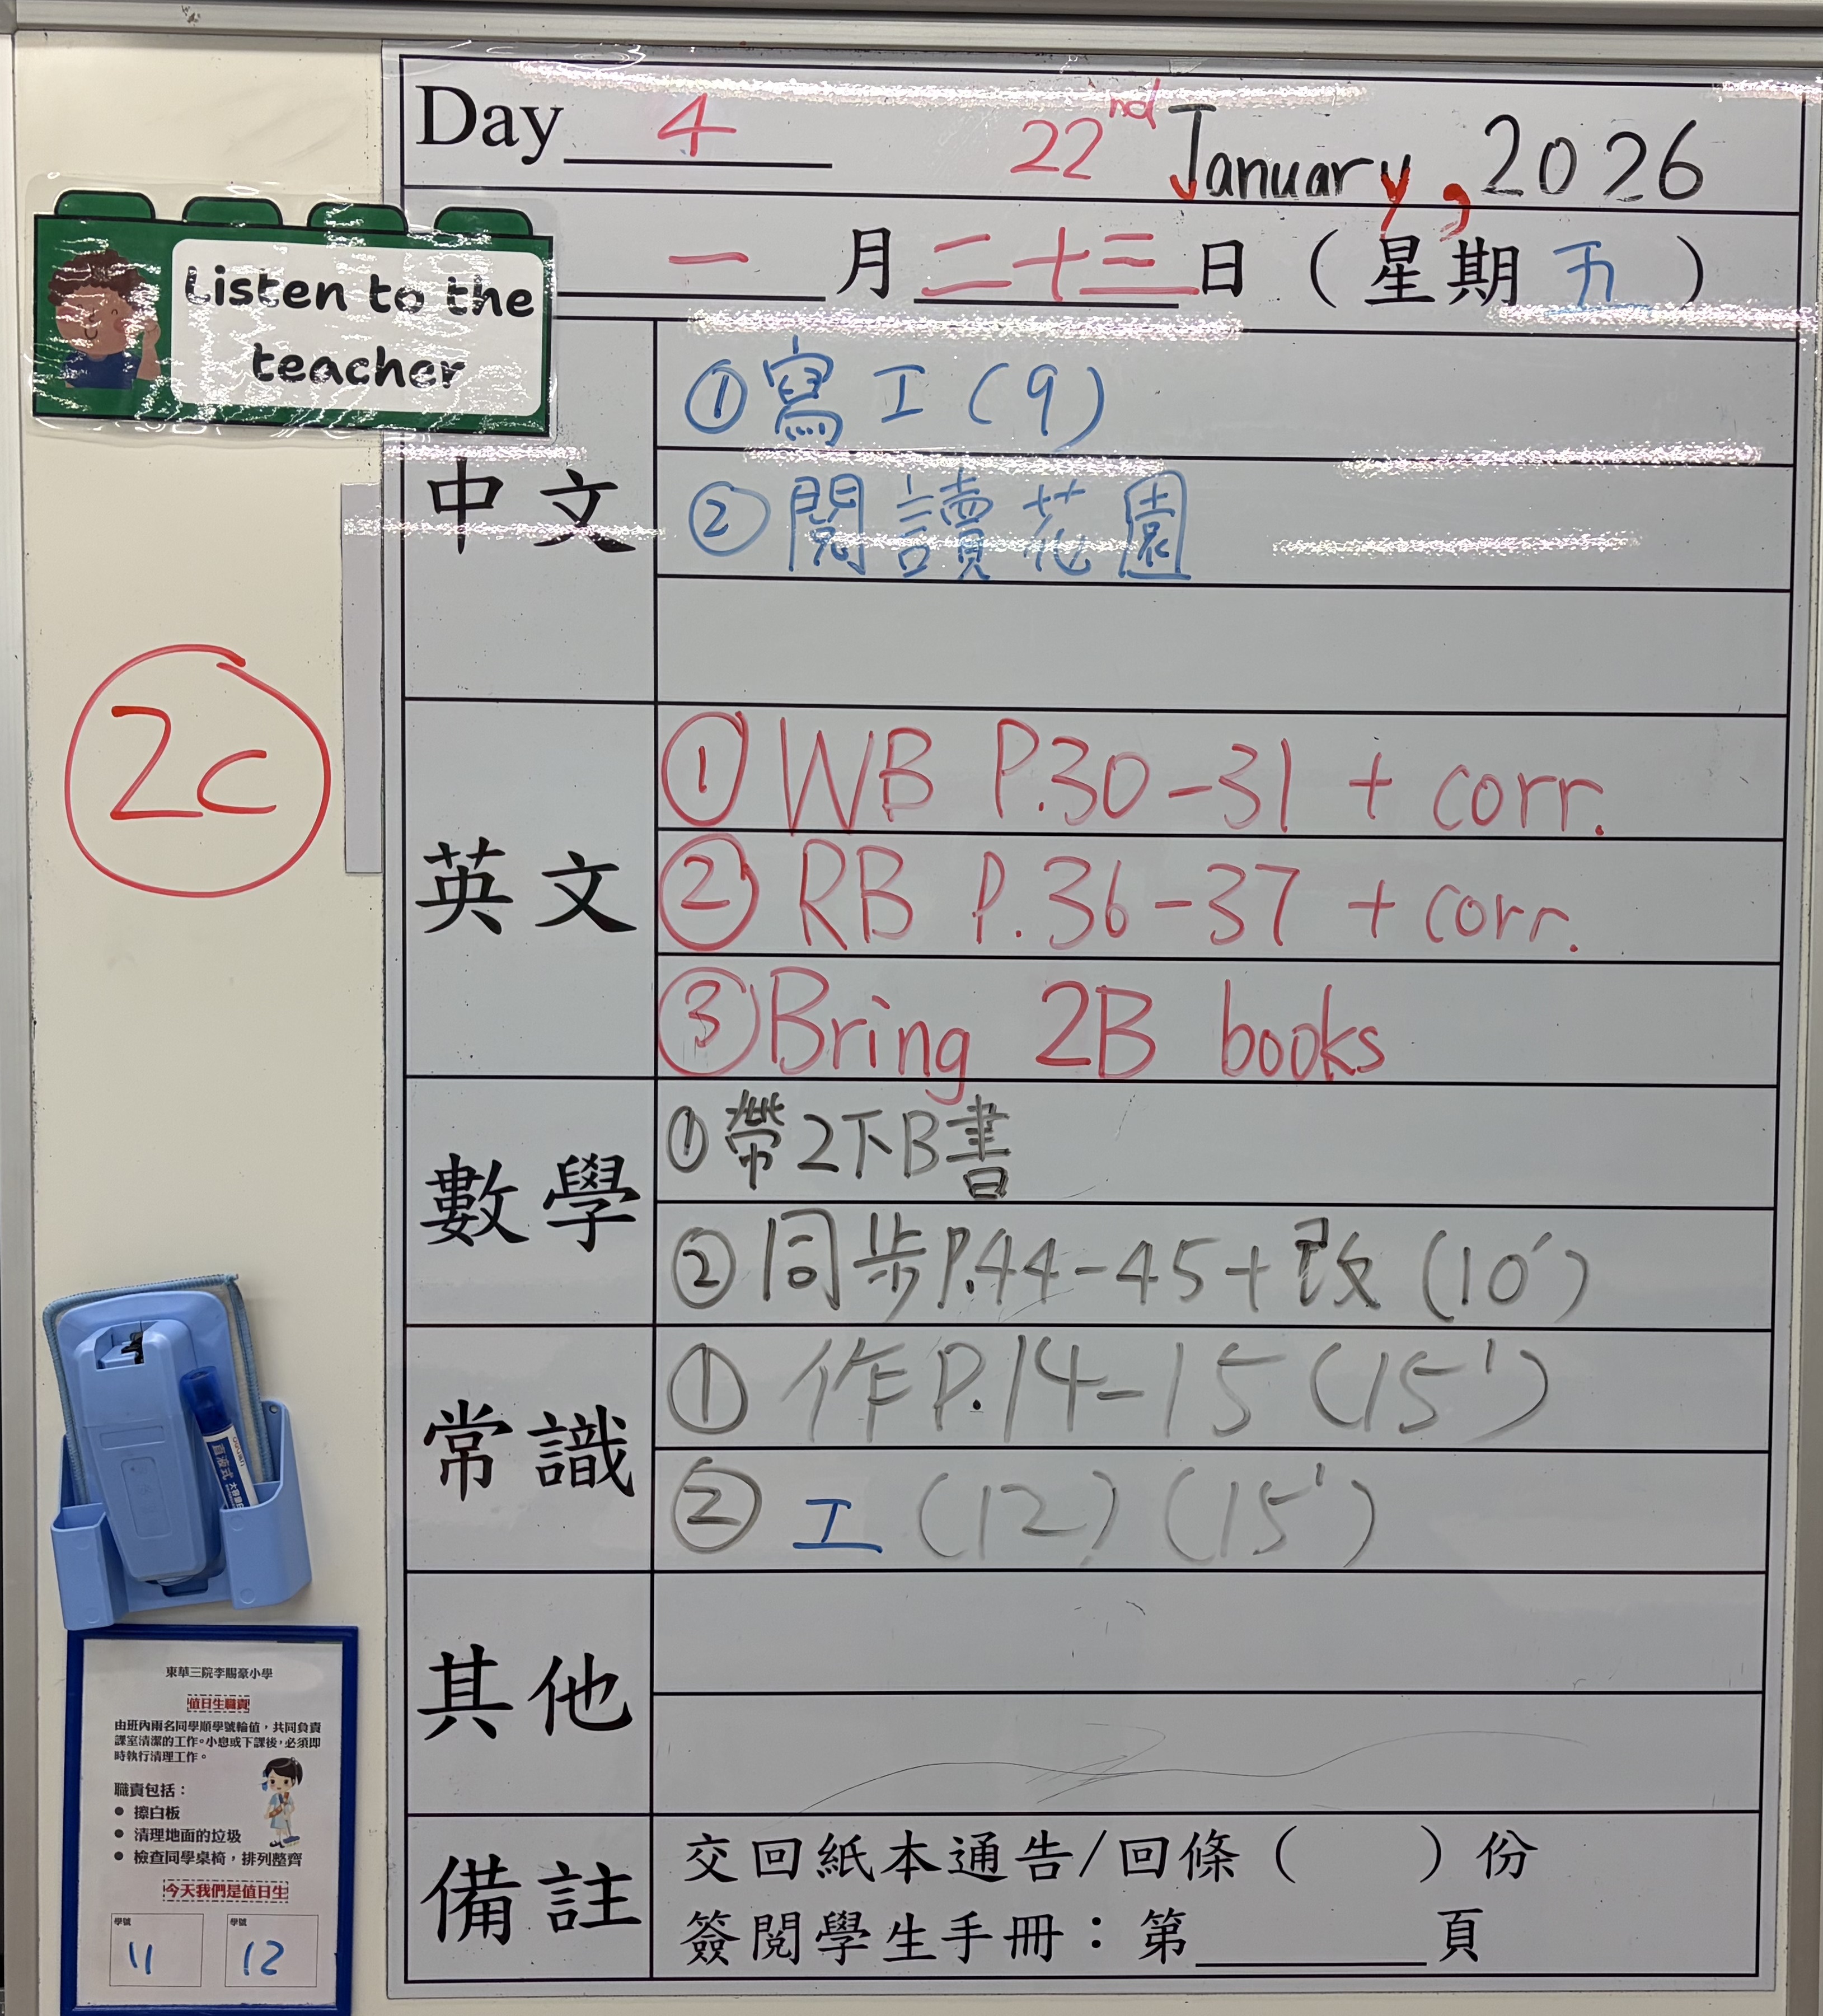 Day 4 22nd January, 2026
一月二十三日（星期五）
Listen to the
teacher
中文
①寫工(9)
②閱讀花園
2c
英文
① WB P.30-31 + corr.
② RB P.36-37 + corr.
③ Bring 2B books
數學
①帶2下B書
②同步P.44-45+改(10')
常識
①作P.14-15(15')
②工(12)(15')
其他
備註
交回紙本通告/回條（　　）份
簽閱學生手冊：第______頁
東華三院李賜豪小學
值日生職責
由班內兩名同學順學號輪值，共同負責
課室清潔的工作。小息或下課後，必須即
時執行清理工作。
職責包括：
● 擦白板
● 清理地面的垃圾
● 檢查同學桌椅，排列整齊
今天我們是值日生
學號 學號
11 12